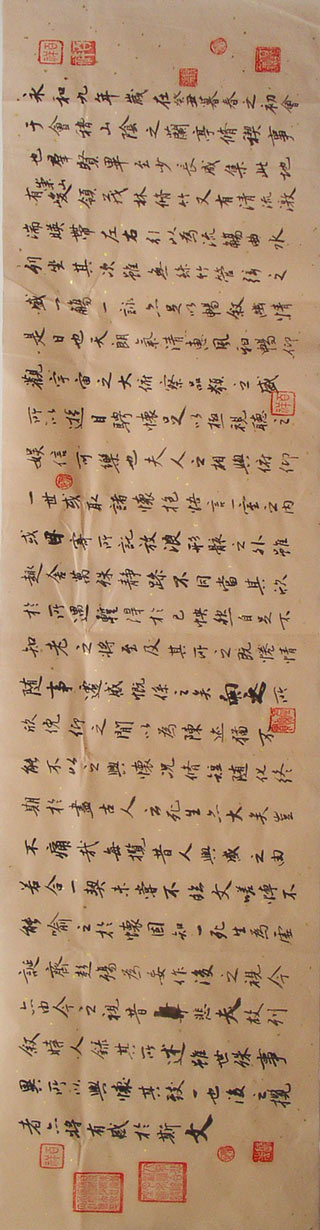 永和九年歲在癸丑暮春之初會
于會稽山陰之蘭亭脩禊事
也群賢畢至少長咸集此地
有崇山峻領茂林脩竹又有清流激
湍暎帶左右引以為流觴曲水
列坐其次雖無絲竹管絃之
盛一觴一詠亦足以暢敘幽情
是日也天朗氣清惠風和暢仰
觀宇宙之大俯察品類之盛
所以遊目騁懷足以極視聽之
娛信可樂也夫人之相與俯仰
一世或取諸懷抱悟言一室之內
或因寄所託放浪形骸之外雖
趣舍萬殊靜躁不同當其欣
於所遇蹔得於己怏然自足不
知老之將至及其所之既惓情
隨事遷感慨係之矣向之所
欣俛仰之閒以為陳迹猶不
能不以之興懷況脩短隨化終
期於盡古人云死生亦大矣豈
不痛哉每攬昔人興感之由
若合一契未嘗不臨文嗟悼不
能喻之於懷固知一死生為虛
誕齊彭殤為妄作後之視今
亦由今之視昔悲夫故列
敘時人錄其所述雖世殊事
異所以興懷其致一也後之攬
者亦將有感於斯文